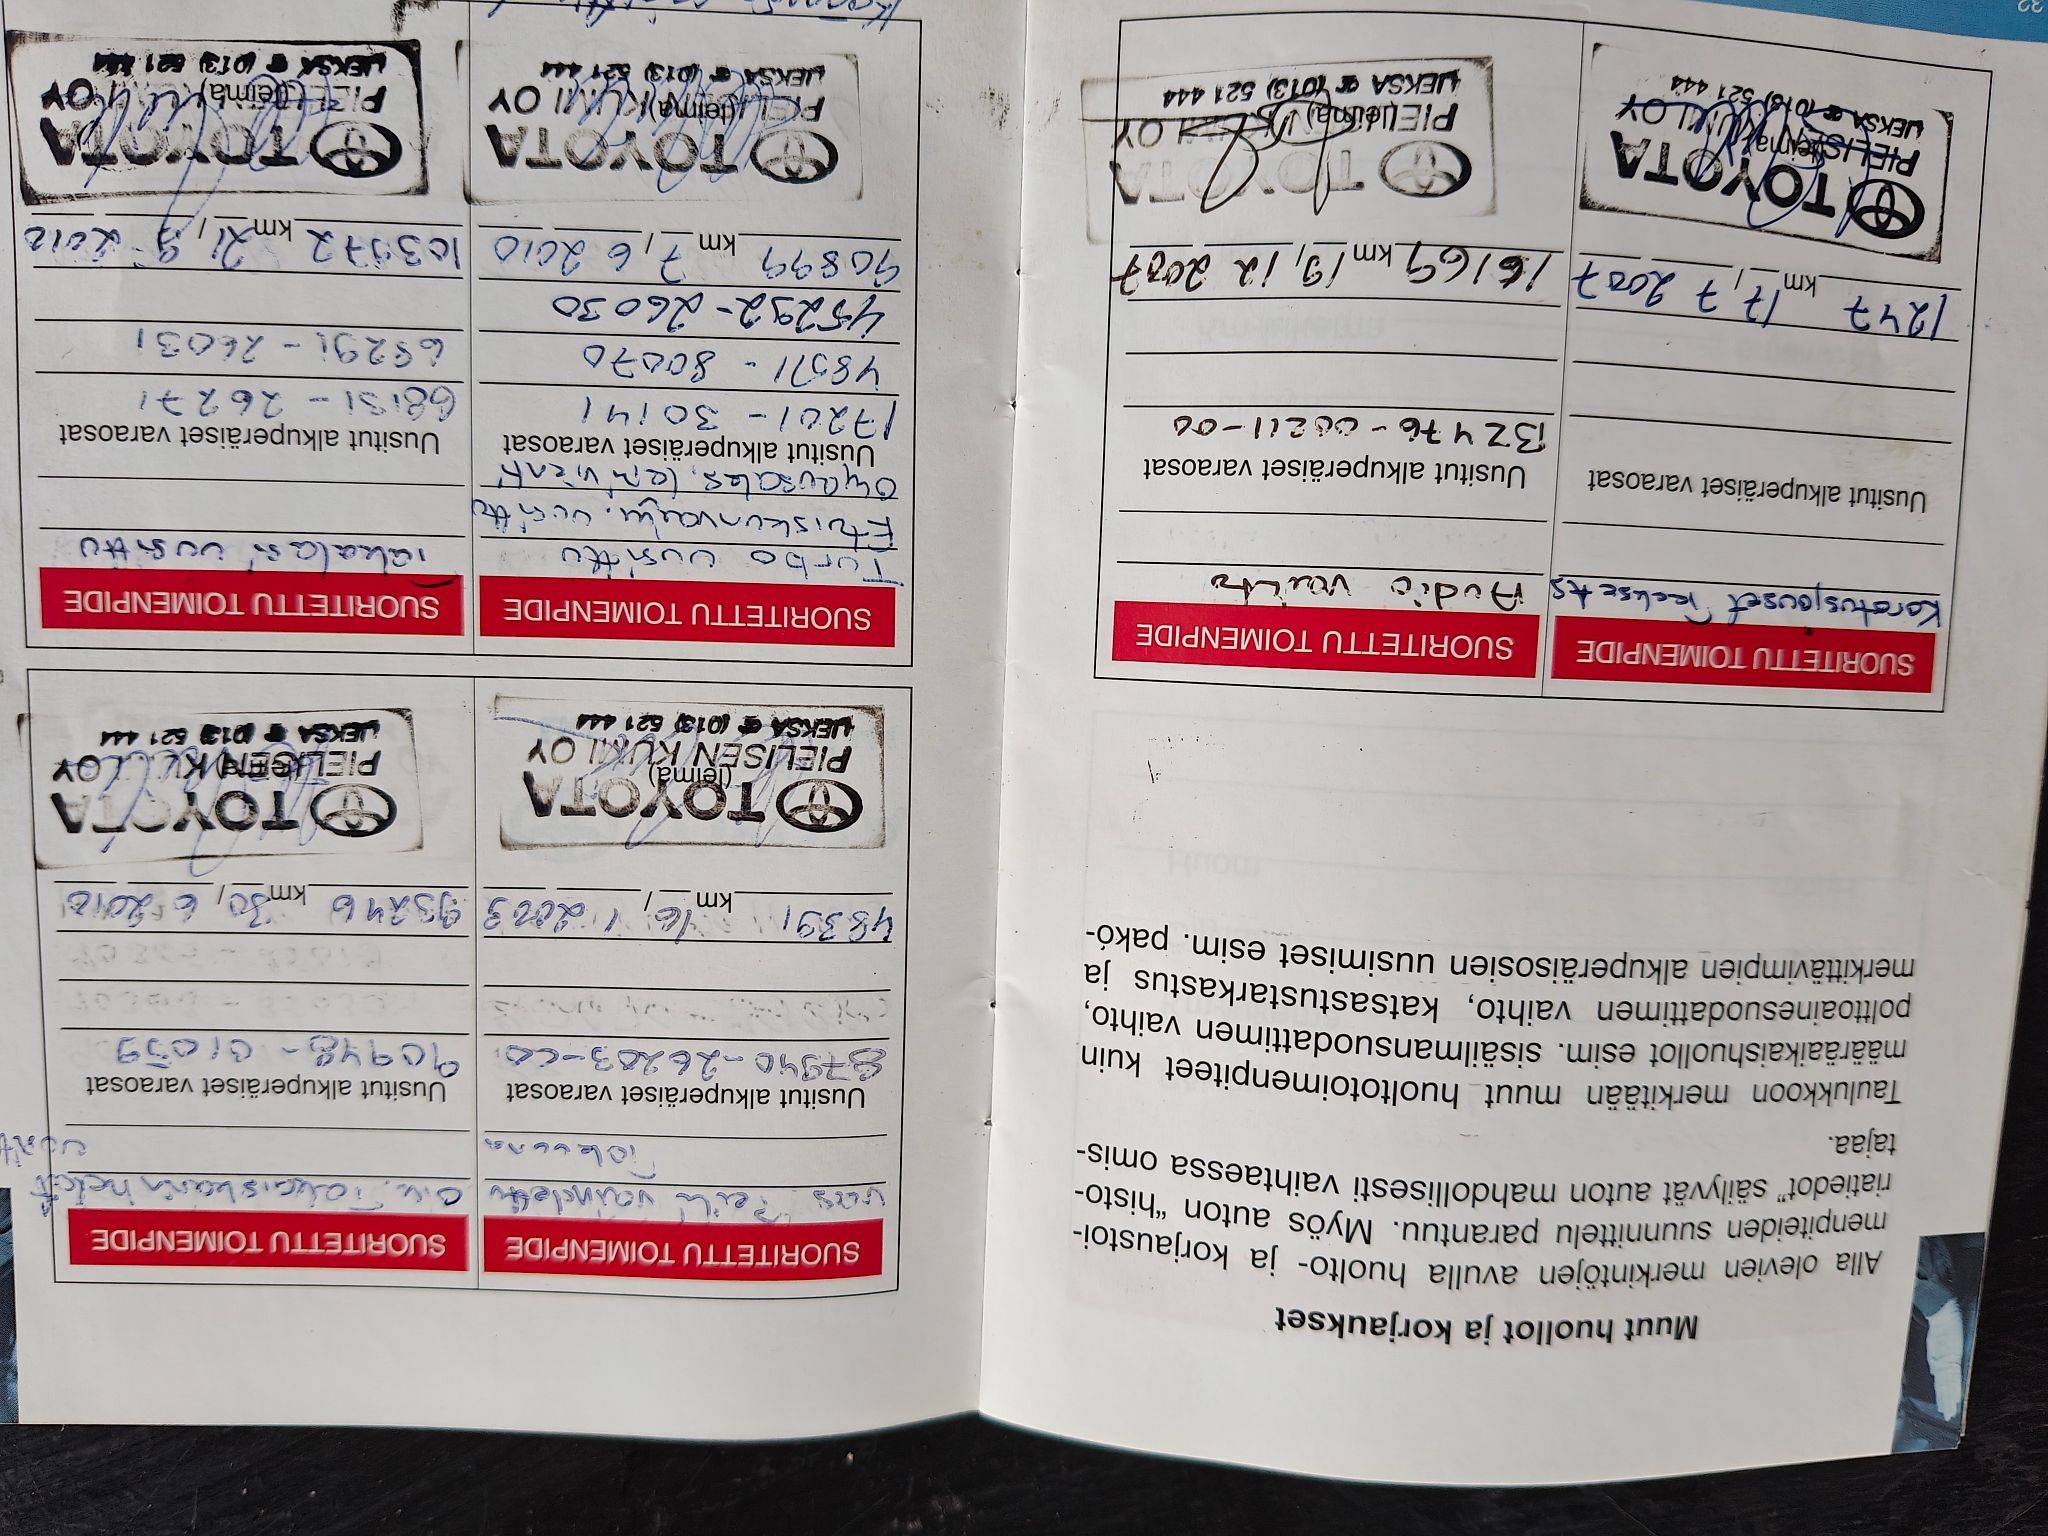 Muut huollot ja korjaukset
Alla olevien merkintöjen avulla huolto- ja korjaustoi-
menpiteiden suunnittelu parantuu. Myös auton "histo-
riatiedot" säilyvät auton mahdollisesti vaihtaessa omis-
tajaa.
Taulukkoon merkitään muut huoltotoimenpiteet kuin
määräaikaishuollot esim. sisäilmansuodattimen vaihto,
polttoainesuodattimen vaihto, katsastustarkastus ja
merkittävimpien alkuperäisosien uusimiset esim. pakó-
SUORITETTU TOIMENPIDE
Korotusjouset
Uusitut alkuperäiset varaosat
1247 km 17 / 7 2007
(leima)
TOYOTA
PIELISEN KUMI OY
LIEKSA (013) 521 444
SUORITETTU TOIMENPIDE
Audio vaihto
Uusitut alkuperäiset varaosat
BZ476-00211-00
16169 km 19 / 12 2007
(leima)
TOYOTA
PIELISEN KUMI OY
LIEKSA (013) 521 444
SUORITETTU TOIMENPIDE
vas Peili vaihdettu
Takuuna
Uusitut alkuperäiset varaosat
87940-26203-C0
48391 km 16 / 1 2009
(leima)
TOYOTA
PIELISEN KUMI OY
LIEKSA (013) 521 444
SUORITETTU TOIMENPIDE
uusittu
Uusitut alkuperäiset varaosat
90948-01059
93246 km 30 / 6 2010
(leima)
TOYOTA
PIELISEN KUMI OY
LIEKSA (013) 521 444
SUORITETTU TOIMENPIDE
Turbo uusittu
Etuiskunvaim. uusittu
Uusitut alkuperäiset varaosat
17201-30141
48511-80070
45292-26030
90899 km 7 / 6 2010
(leima)
TOYOTA
PIELISEN KUMI OY
LIEKSA (013) 521 444
SUORITETTU TOIMENPIDE
Takalasi uusittu
Uusitut alkuperäiset varaosat
68151-26271
68291-26031
103972 km 21 / 9 2010
(leima)
TOYOTA
PIELISEN KUMI OY
LIEKSA (013) 521 444
32